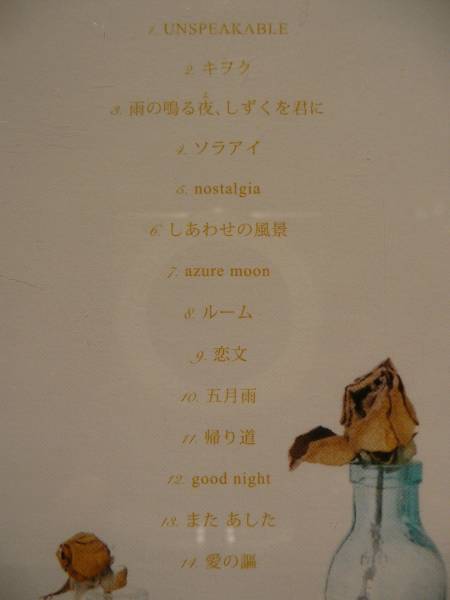 1. UNSPEAKABLE
2. キヲク
3. 雨の鳴る夜、しずくを君に
4. ソラアイ
5. nostalgia
6. しあわせの風景
7. azure moon
8. ルーム
9. 恋文
10. 五月雨
11. 帰り道
12. good night
13. また あした
14. 愛の謳